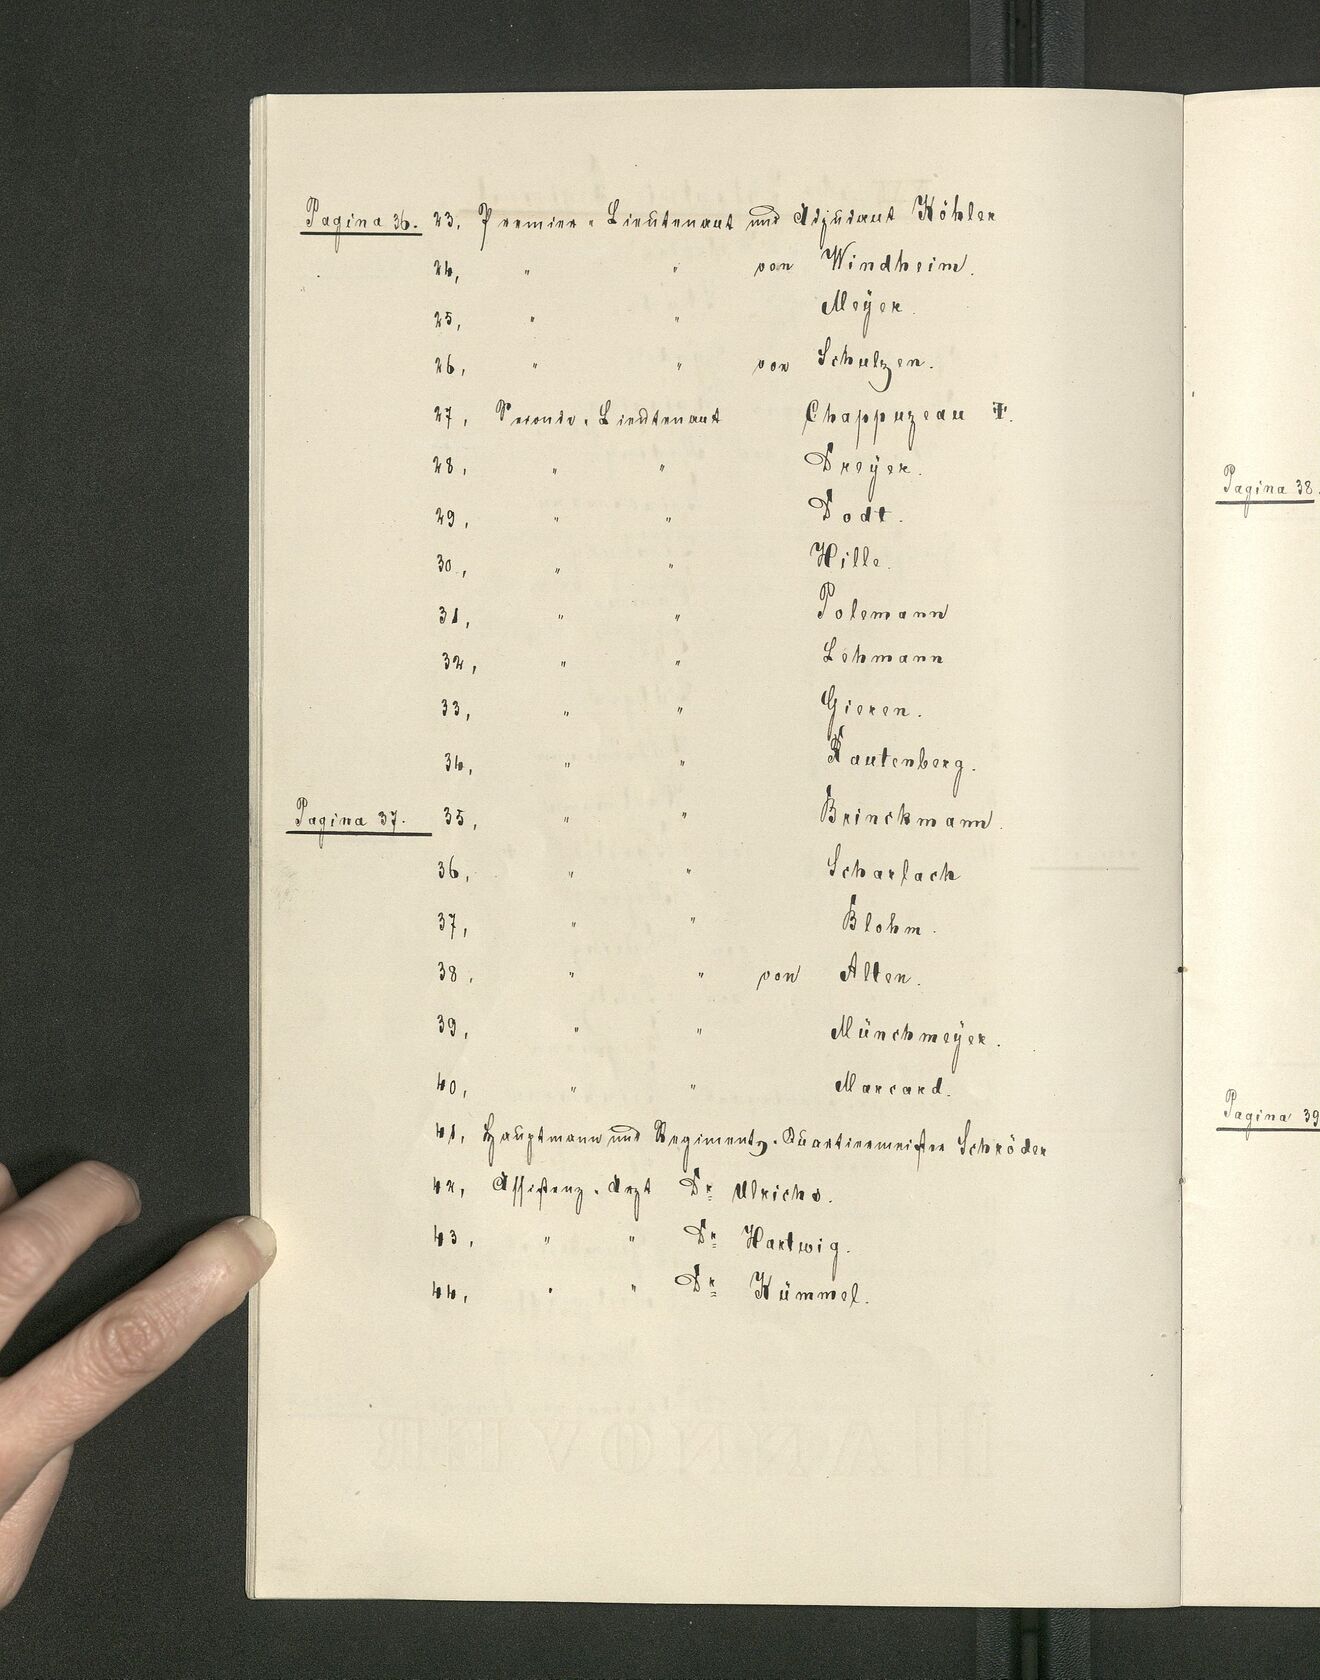 Pagina 36. 23, Premier-Lieutenant und Adjudant Köhler
24, " " von Windheim.
25, " " Meÿer.
26, " " von Schulzen.
27, Seconde-Lieutenant Chappuzeau I.
28, " " Dreÿer.
29, " " Dodt.
30, " " Hille.
31, " " Polemann
32, " " Lehmann
33, " " Gieren.
34, " " Rautenberg.
Pagina 37. 35, " " Brinckmann.
36, " " Scharlach
37, " " Blohm.
38, " " von Alten.
39, " " Münchmeÿer.
40, " " Marcard.
41, Hauptmann und Regiments-Quartiermeister Schröder
42, Assistenz-Arzt Dr Ulrichs.
43, " " Dr Hartwig.
44, " " Dr Kümmel.
HANNOVER
Pagina 38.
Pagina 39